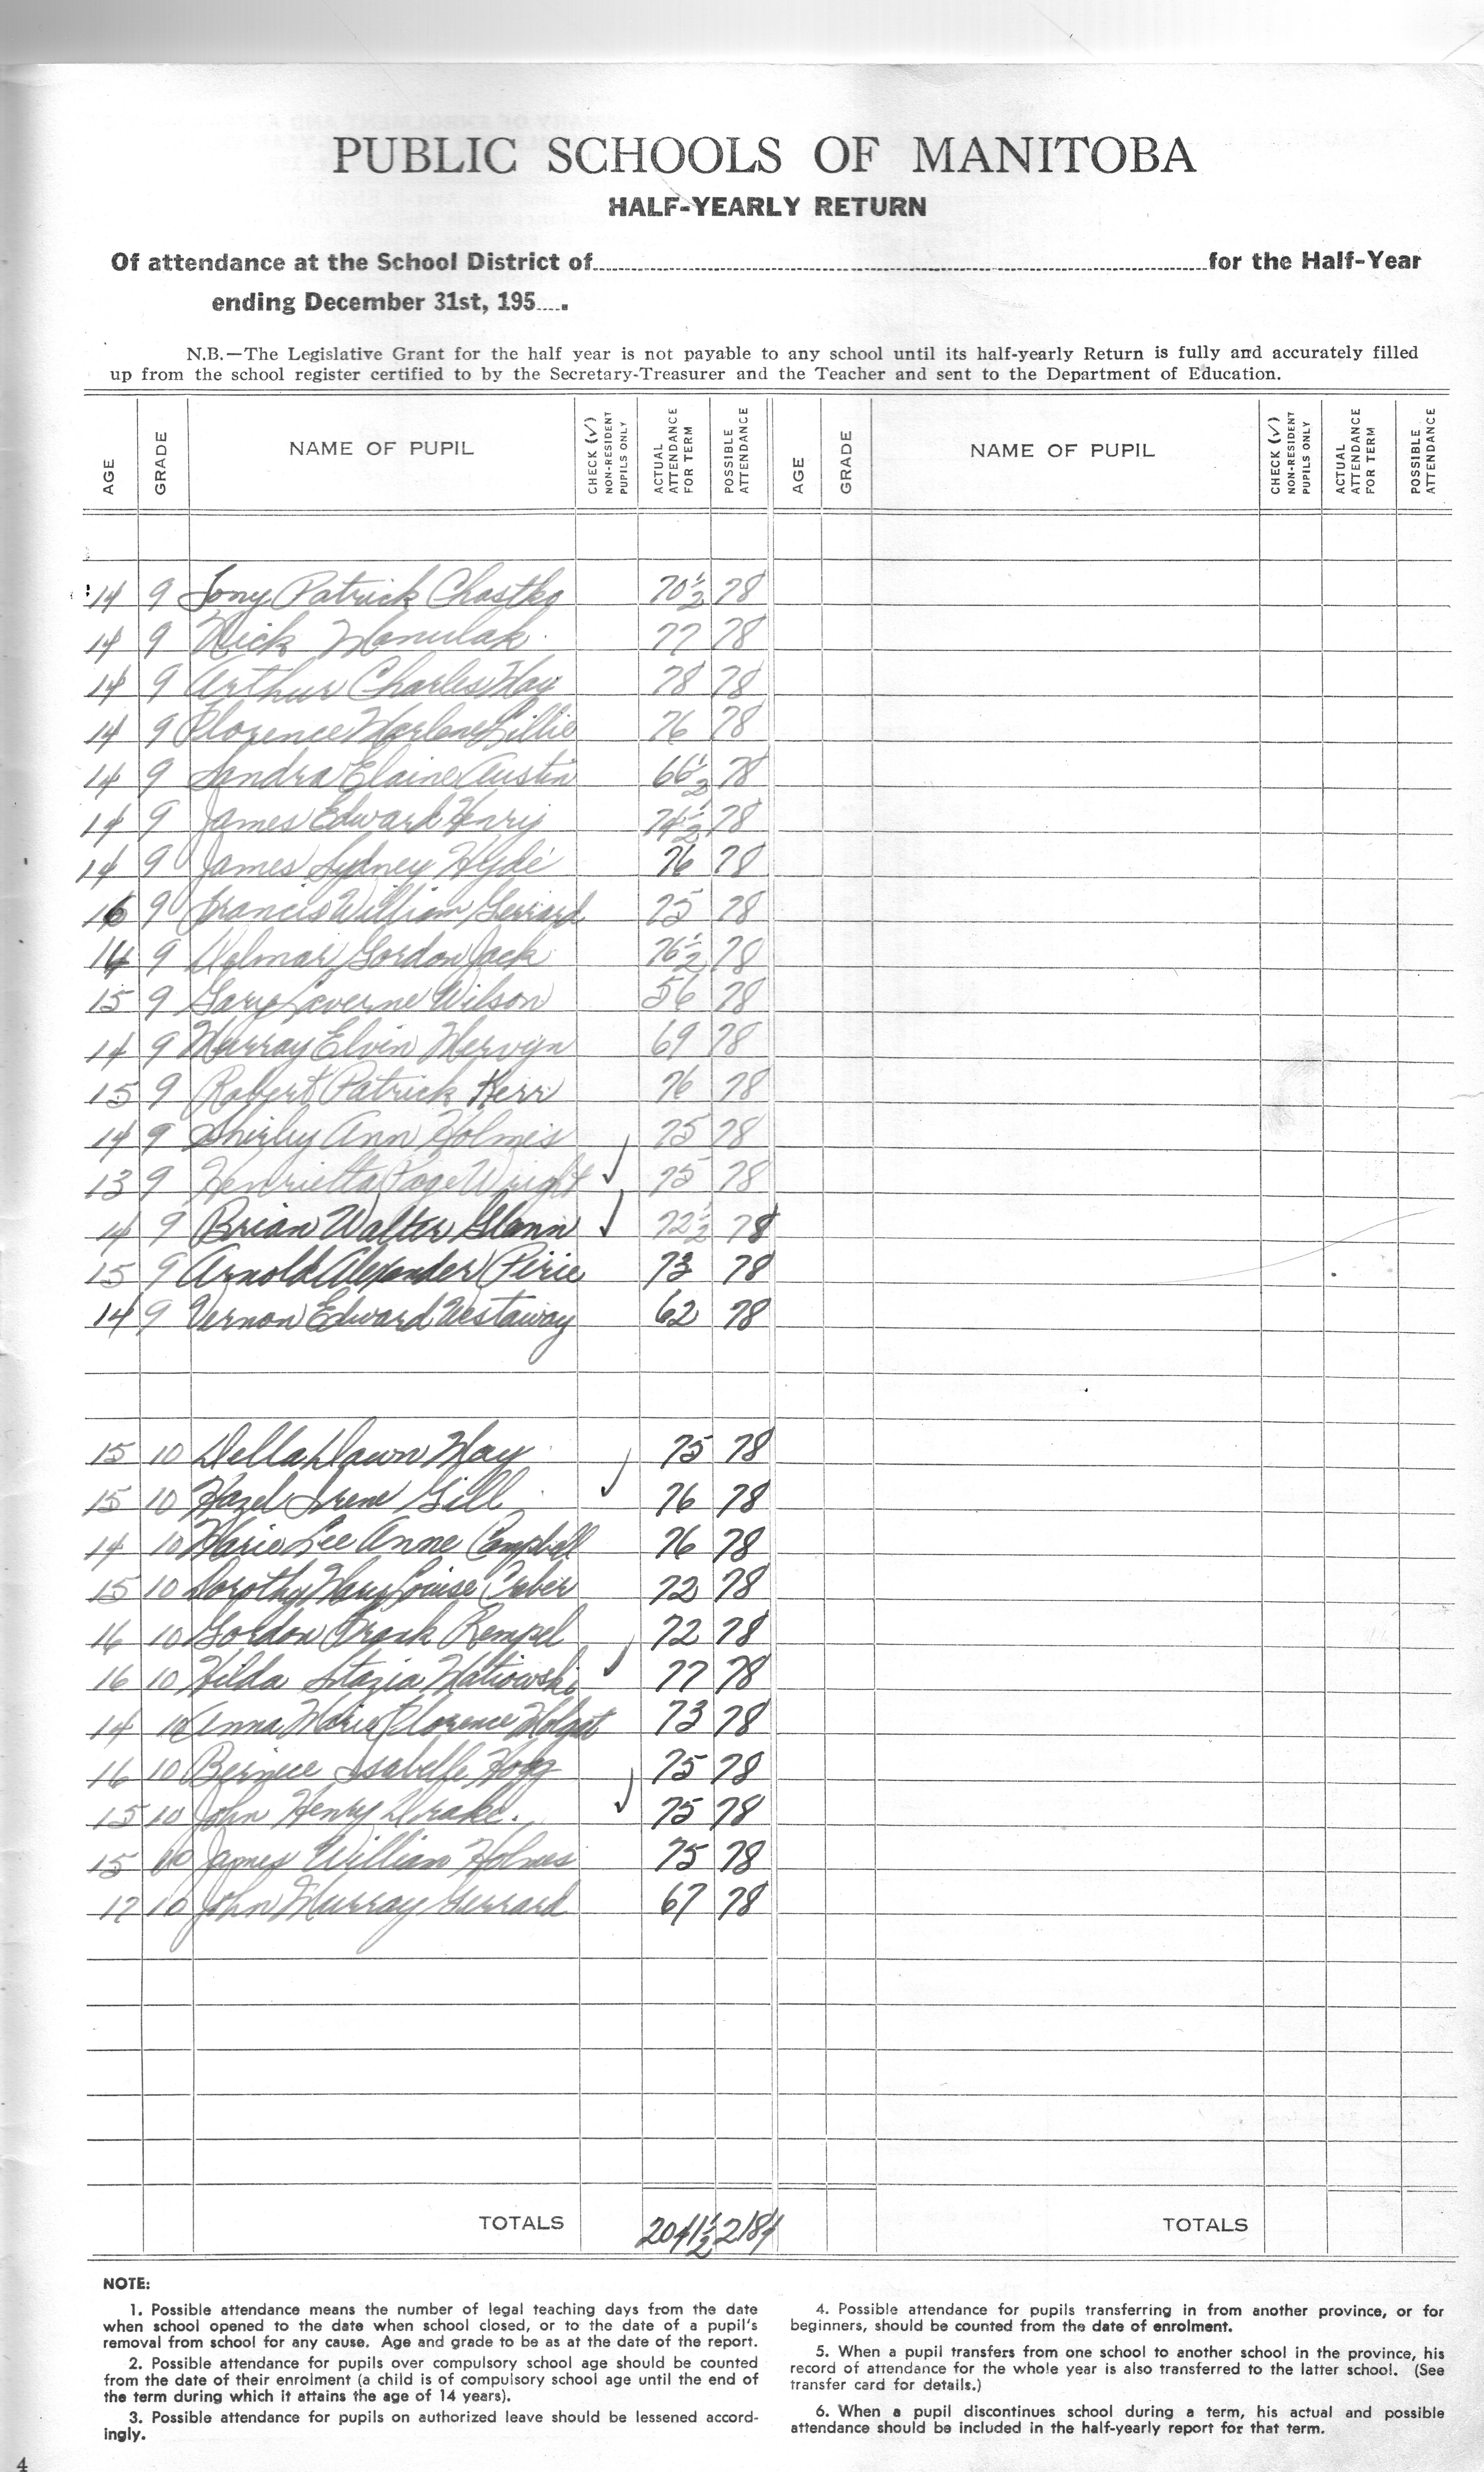 PUBLIC SCHOOLS OF MANITOBA
HALF-YEARLY RETURN
Of attendance at the School District of for the Half-Year
ending December 31st, 195
N.B.—The Legislative Grant for the half year is not payable to any school until its half-yearly Return is fully and accurately filled
up from the school register certified to by the Secretary-Treasurer and the Teacher and sent to the Department of Education.
AGE GRADE NAME OF PUPIL CHECK (✓) NON-RESIDENT PUPILS ONLY ACTUAL ATTENDANCE FOR TERM POSSIBLE ATTENDANCE AGE GRADE NAME OF PUPIL CHECK (✓) NON-RESIDENT PUPILS ONLY ACTUAL ATTENDANCE FOR TERM POSSIBLE ATTENDANCE
14 9 Tony Patrick Chastko 70½ 78
14 9 Nick Manulak 77 78
14 9 Arthur Charles May 78 78
14 9 Florence Marlene Lillie 76 78
14 9 Sandra Elaine Austin 66½ 78
14 9 James Edward Henry 74½ 78
14 9 James Sydney Hyde 76 78
16 9 Francis William Gerrard 75 78
14 9 Delmar Gordon Jack 76½ 78
15 9 Gary Laverne Wilson 56 78
14 9 Murray Elvin Mervyn 69 78
15 9 Robert Patrick Kerr 76 78
14 9 Shirley Ann Holmes 75 78
13 9 Henrietta Wright ✓ 75 78
14 9 Brian Walter Glann ✓ 72½ 78
15 9 Arnold Alexander Pirie 73 78
14 9 Vernon Edward Westaway 62 78
15 10 Della Dawn May 75 78
15 10 Hazel Irene Gill ✓ 76 78
14 10 Marie Lee Anne Campbell 76 78
15 10 Dorothy Mary Louise Creber 72 78
16 10 Gordon Frank Rempel 72 78
16 10 Hilda Stazia Matiowski ✓ 77 78
14 10 Anna Marie Florence Molgat 73 78
16 10 Bernice Isabelle Hogg 75 78
15 10 John Henry Drake. ✓ 75 78
15 10 James William Holmes 75 78
17 10 John Murray Gerrard 67 78
TOTALS 2041½ 2184 TOTALS
NOTE:
1. Possible attendance means the number of legal teaching days from the date
when school opened to the date when school closed, or to the date of a pupil's
removal from school for any cause. Age and grade to be as at the date of the report.
2. Possible attendance for pupils over compulsory school age should be counted
from the date of their enrolment (a child is of compulsory school age until the end of
the term during which it attains the age of 14 years).
3. Possible attendance for pupils on authorized leave should be lessened accord-
ingly.
4. Possible attendance for pupils transferring in from another province, or for
beginners, should be counted from the date of enrolment.
5. When a pupil transfers from one school to another school in the province, his
record of attendance for the whole year is also transferred to the latter school. (See
transfer card for details.)
6. When a pupil discontinues school during a term, his actual and possible
attendance should be included in the half-yearly report for that term.
4